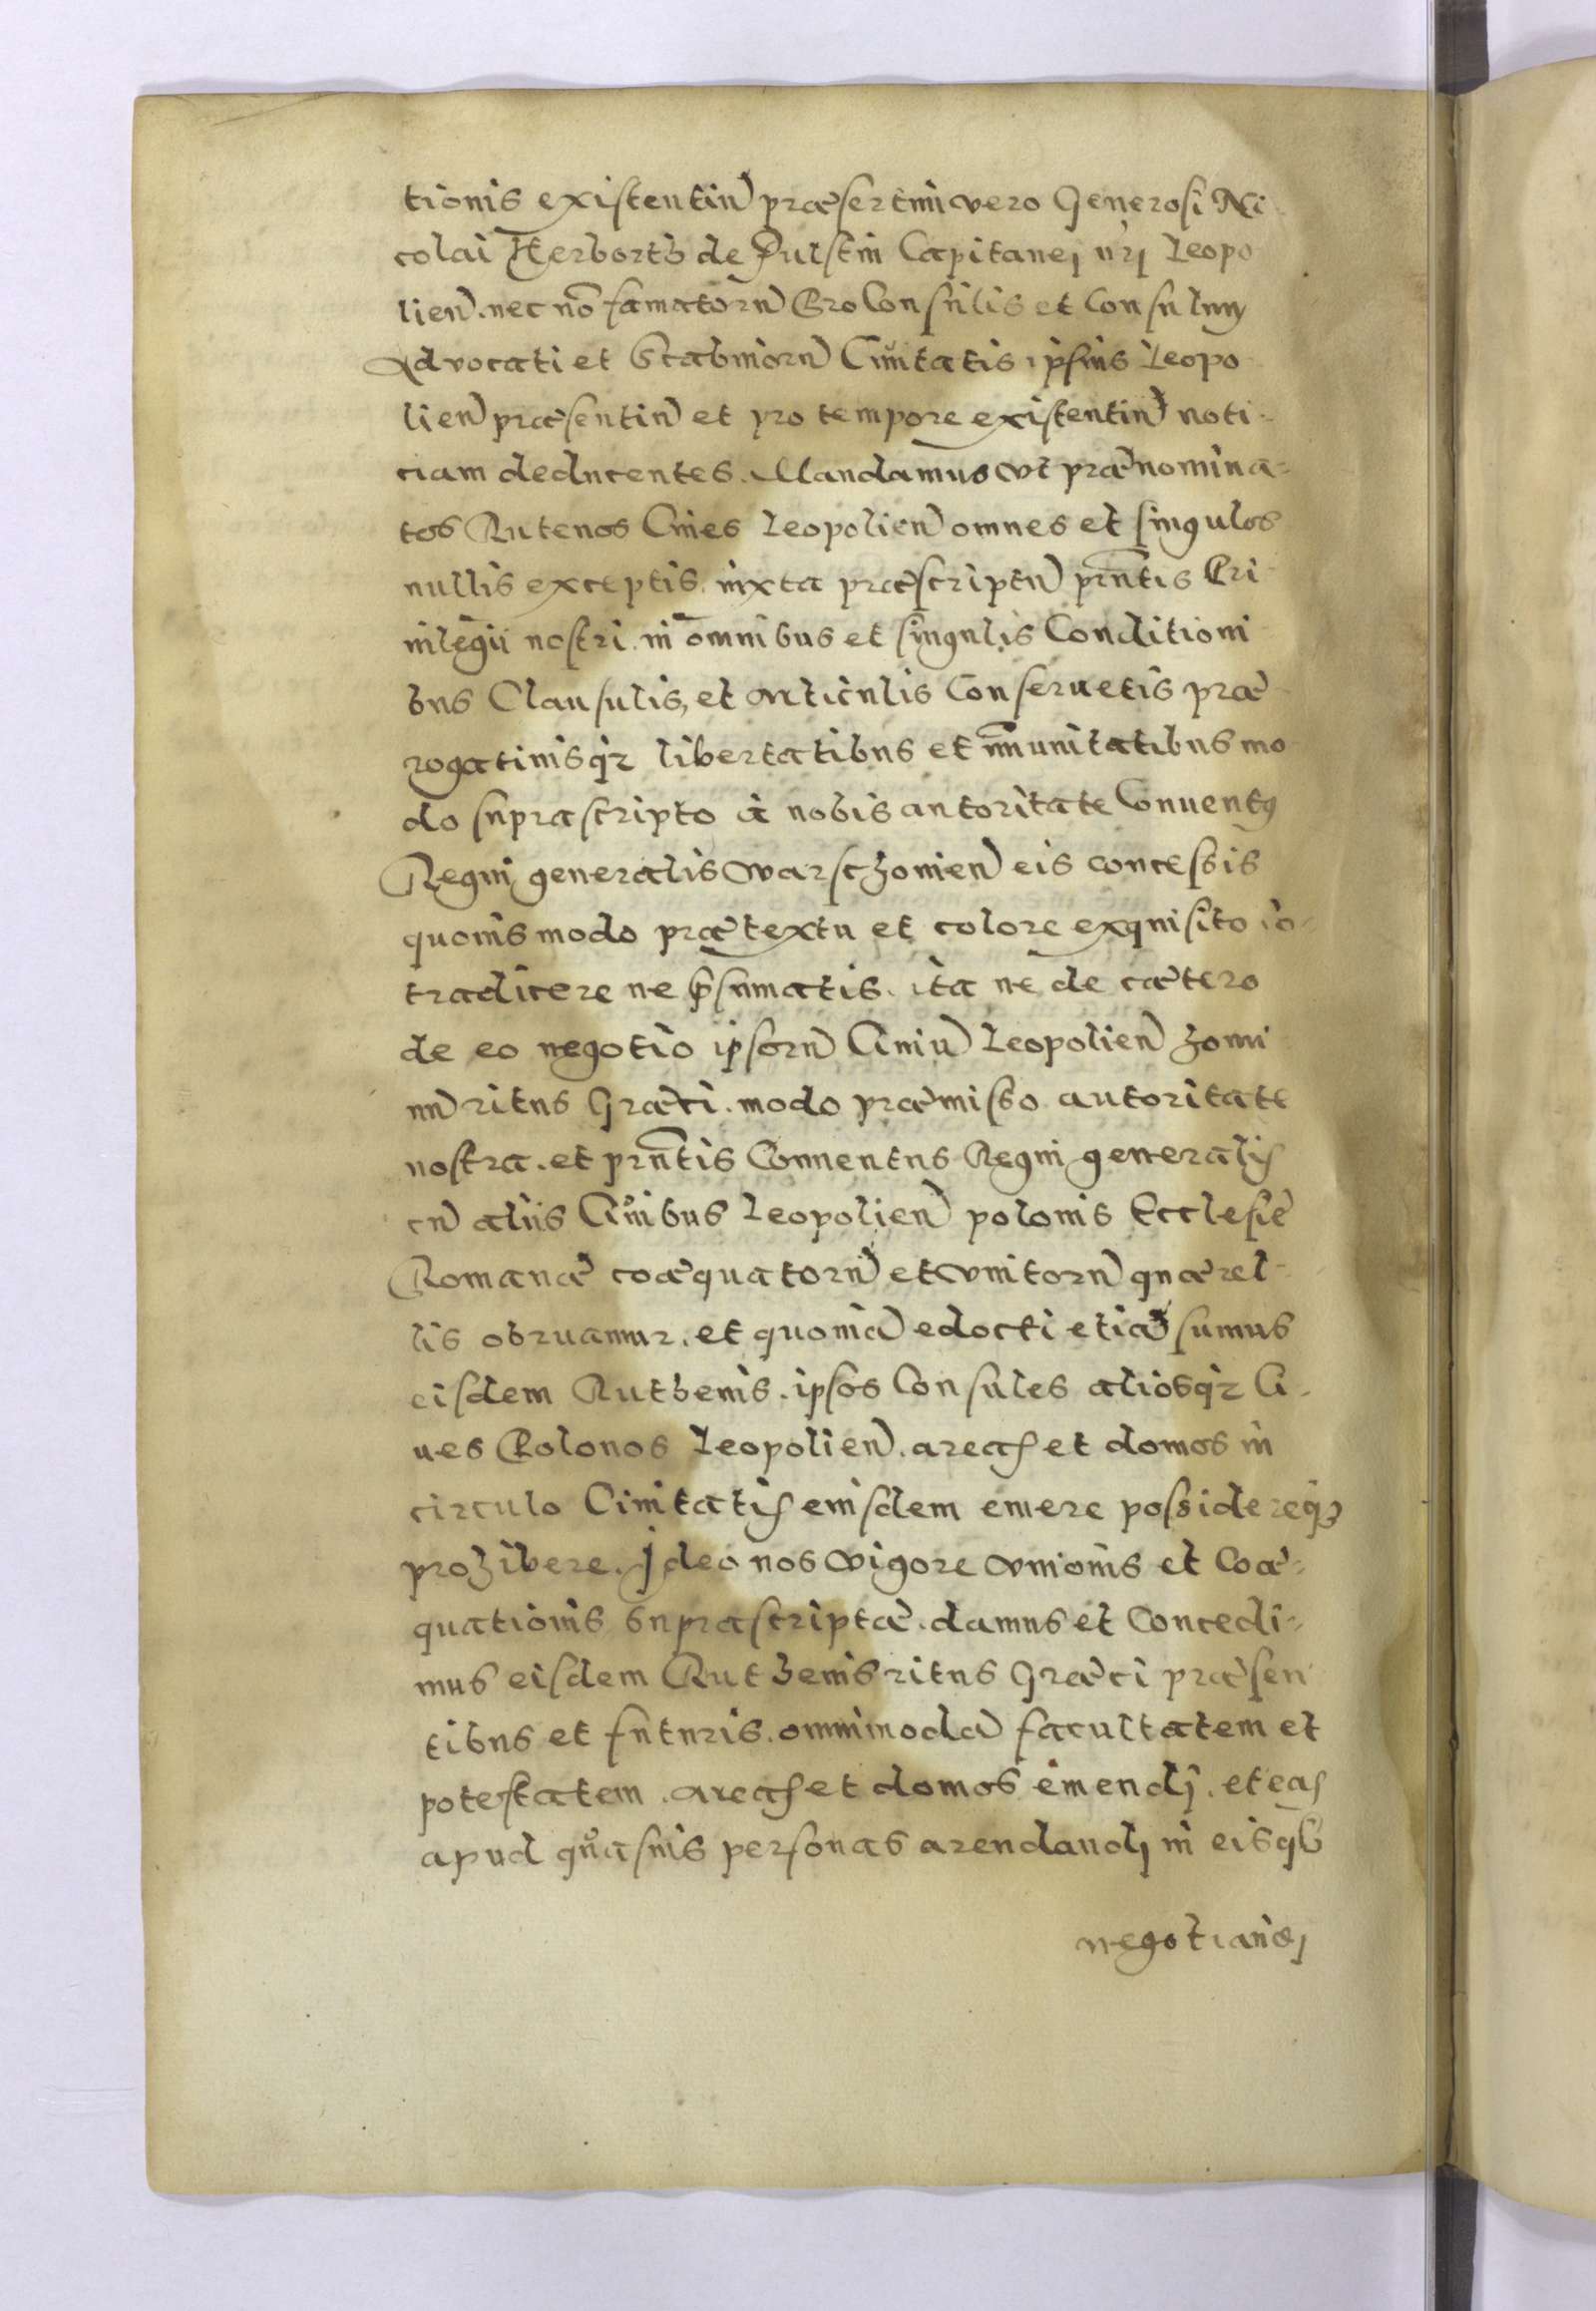 tionis existentiū præsertim vero Generosi Ni
colai Herborth de Fulstin Capitanej nrj Leopo
lien̄. nec nō famatorū ProConsulis et Consulum
Advocati et Scabinorū Ciuitatis ipsius Leopo
lien̄ præsentiū et pro tempore existentiū noti-
ciam deducentes. Mandamus vt prænomina-
tos Rutenos Ciues Leopolien̄ omnes et singulos
nullis exceptis. iuxta præscriptū prn̄tis Pri
uilegii nostri. in omnibus et singulis Conditioni
bus Clausulis, et Articulis Conseruetis præ
rogatiuisqz libertatibus et im̄unitatibus mo
do suprascripto à nobis autoritate Conuentus
Regni generalis Warschouien̄ eis concessis
quouis modo prætextu et colore exquisito cō-
tradicere ne p̄sumatis. ita ne de cætero
de eo negotio ipsorū Ciuiū Leopolien̄ homi
nū ritus Græci. modo præmisso autoritate
nostra. et prn̄tis Conuentus Regni generalis
cū aliis Ciuibus Leopolien̄ polonis Ecclesiè
Romanæ coæquatorū et vnitorū quærel-
lis obruamur. et quoniā edocti etiā sumus
eisdem Ruthenis. ipsos Consules aliosqz Ci-
ues Polonos Leopolien̄. areas et domos in
circulo Ciuitatis eiusdem emere possidereqz
prohibere. Ideo nos vigore vnionis et Coæ-
quationis suprascriptæ. damus et Concedi-
mus eisdem Ruthenis ritus Græci præsen
tibus et futuris. omnimodā facultatem et
potestatem. areas et domos emendj. et eas
apud quasuis personas arendandj in eisqz
negotiandj